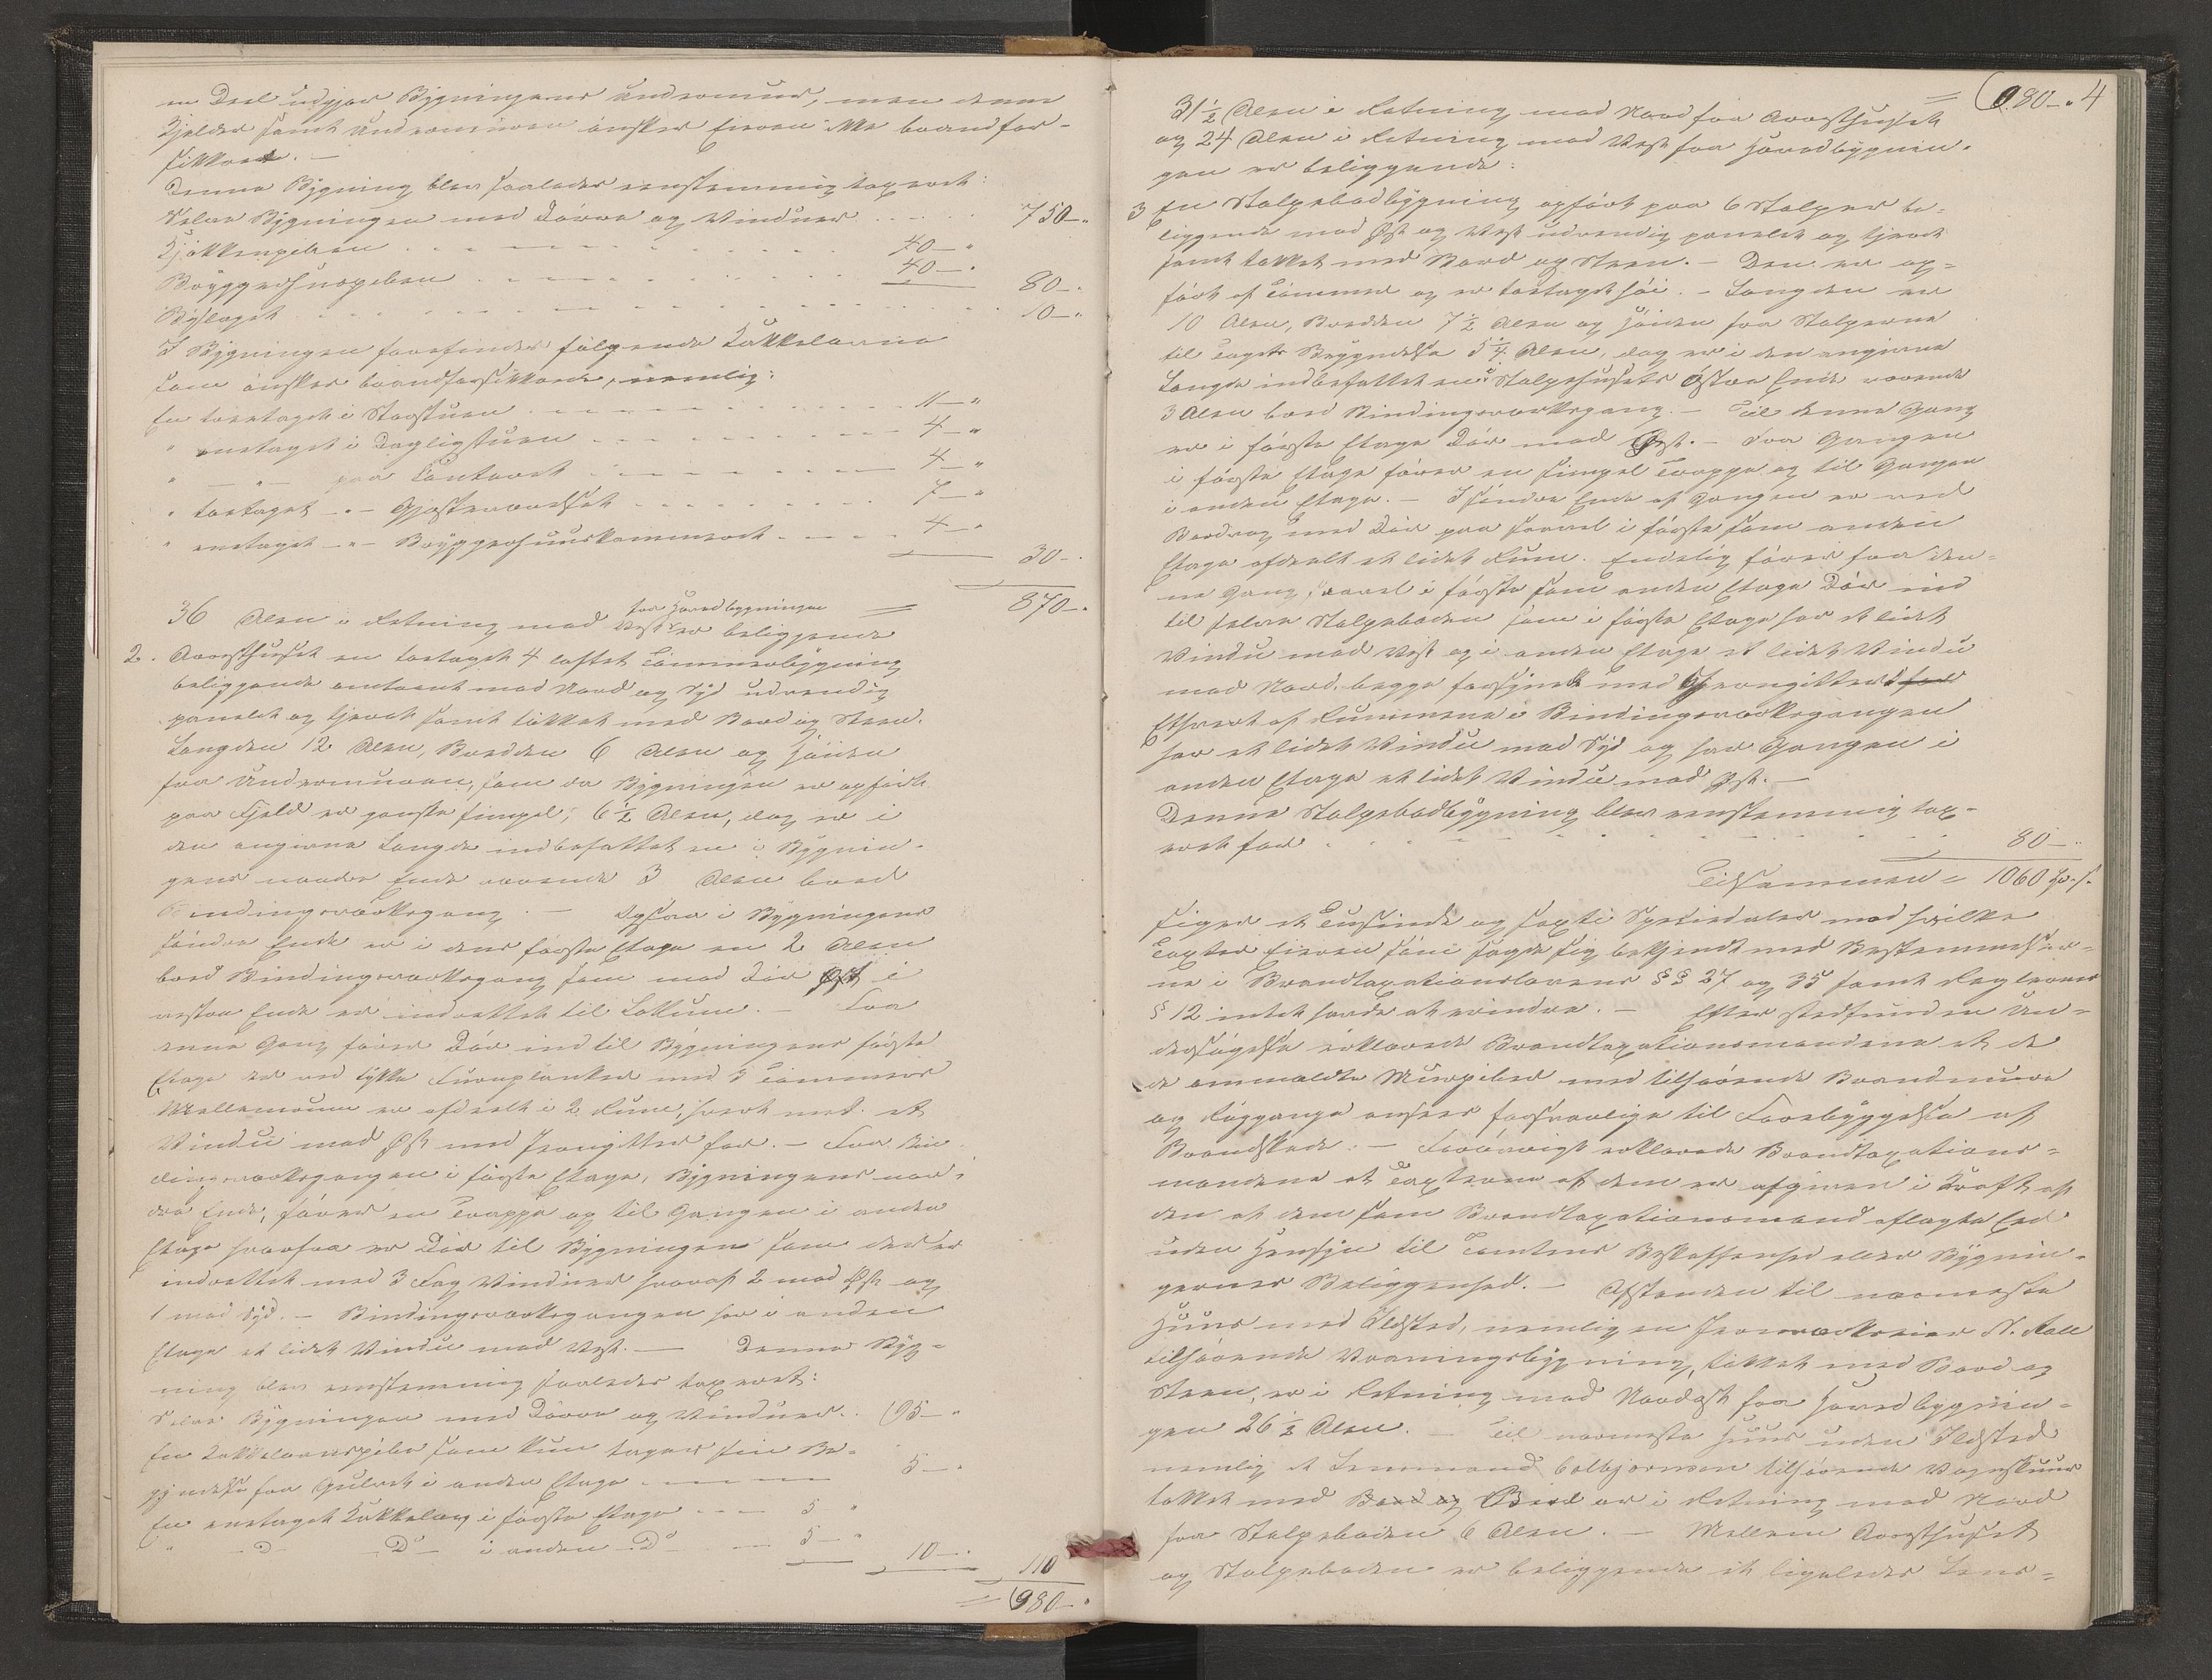 en Deel udgjør Bygningens undermuur, men denne
Kjelder samt Undermuren ønsker Eieren ikke brandfor-
sikkret. —
Denne Bygning blev saaledes eenstemmig taxeret:
Selve Bygningen med Dørre og Vinduer . . . . 750 — "
Kjøkkenpiben . . . . 40 — "
Bryggerhuuspiben . . . . 40 — " 80 — "
Bislaget . . . . 10 — "
I Bygningen forefindes følgende Kakkelovne
som ønskes brandforsikkrede, nemlig:
En toetaget i Storstuen . . . . 11 — "
" enetaget i Dagligstuen . . . . 4 — "
" — " — paa Contoret . . . . 4 — "
" toetaget — " — Gjæsteværelset . . . . 7 — "
" enetaget — " — Bryggerhuuskammeret . . . . 4 — "
30 — "
= 870 — "
fra Hovedbygningen
36 Alen i Retning mod Vest er beliggende
2. Arresthuset en toetaget 4 laftet Tømmerbygning
beliggende omtrent mod Nord og Syd udvendig
panelet og tjæret samt tækket med Bord og Steen.
Længden 12 Alen, Bredden 6 Alen og Høiden
fra Undermuren, som da Bygningen er opført
paa Fjeld er ganske simpel, 6½ Alen, dog er i
den angivne Længde indbefattet en i Bygnin-
gens nordre Ende værende 3 Alen bred
Bindingsværksgang. — Ogsaa i Bygningens
søndre Ende er i dens første Etage en 2 Alen
bred Bindingsværksgang som med Dør Øst i
vestre Ende er indrettet til Lokum. — Fra
denne Gang fører Dør ind til Bygningens første
Etage der ved tykke Furuplanker med Tømmers
Mellemrum er afdeelt i 2 Rum, hvert med et
Vindu mod Øst med Jerngitter for. — Fra Bin
dingsværksgangen i første Etage, Bygningens nor-
dre Ende, fører en Trappe op til Gangen i anden
Etage hvorfra er Dør til Bygningen som der er
indrettet med 3 Fag Vinduer hvoraf 2 mod Øst og
1 mod Syd. — Bindingsværksgangen har i anden
Etage et lidet Vindu mod Vest. — Denne Byg-
ning blev eenstemmig saaledes taxeret:
Selve Bygningen med Dørre og Vinduer . . 95 — "
En Kakkelovnspibe som kun tager sin Be-
gyndelse fra Gulvet i anden Etage . . . . 5 — "
En enetaget Kakkelovn i første Etage . . . 5 "
" — D — D° — i anden D° — 5 — " 10 — " 110
= 980 — "
= 980 — " 4
31½ Alen i Retning mod Nord fra Arresthuset
og 24 Alen i Retning mod Vest fra Hovedbygnin-
gen er beliggende:
3 En Stolpebodbygning opført paa 6 Stolper be-
liggende mod Øst og Vest udvendig panelet og tjæret
samt tækket med Bord og Steen. — Den er op-
ført af Tømmer og er toetaget høi. — Længden er
10 Alen, Bredden 7½ Alen og Høiden fra Stolperne
til Tagets Begyndelse 5¼ Alen, dog er i den angivne
Længde indbefattet en i Stolpehusets østre Ende værende
3 Alen bred Bindingsværksgang. — Til denne Gang
er i første Etage Dør mod Øst. — Fra Gangen
i første Etage fører en simpel Trappe op til Gangen
i anden Etage. — I søndre Ende af Gangen er ved
Bordvæg med Dør paa saavel i første som anden
Etage afdeelt et lidet Rum. Endelig fører fra den-
ne Gang, saavel i første som anden Etage Dør ind
til selve Stolpeboden som i første Etage har et lidet
Vindu mod Vest og i anden Etage et lidet Vindu
mod Nord, begge forsynede med Jerngitter for
Ethvert af Rummene i Bindingsværksgangen
har et lidet Vindu mod Syd og har Gangen i
anden Etage et lidet Vindu mod Øst. —
Denne Stolpebodbygning blev eenstemmig tax-
eret for . . . . 80 — "
Tilsammen = 1060
siger et Tusinde og sexti Speciedaler mod hvilke
Taxter Eieren som sagde sig bekjendt med Bestemmelser-
ne i Brandtaxationslovens §§ 27 og 35 samt
§ 12 intet havde at erindre. — Efter stedfunden Un-
dersøgelse erklærede Brandtaxationsmændene at de
de anmeldte Muurpiber med tilhørende Brandmure
og Røggange ansees forsvarlige til Forebyggelse af
Brandskade. — Forøvrigt erklærede Brandtaxations-
mændene at Taxterne af dem er afgivne i Kraft af
den af dem som Brandtaxationsmænd aflagte Eed
uden Hensyn til Tomtens Beskaffenhed eller Bygnin-
gernes Beliggenhed. — Afstanden til nærmeste
Huus med Ildsted, nemlig en Jernværkseier N. Aall
tilhørende Vaaningsbygning, tækket med Bord og
Steen, er i Retning mod Nordost fra Hovedbygnin-
gen 26½ Alen. — Til nærmeste Huus uden Ildsted
nemlig et Lensmand Colbjørnsen tilhørende Vognskuur
tækket med Bord og Bord er i Retning mod Nord
fra Stolpeboden 6 Alen. — Mellem Arresthuset
og Stolpeboden er beliggende et ligeledes Lens-